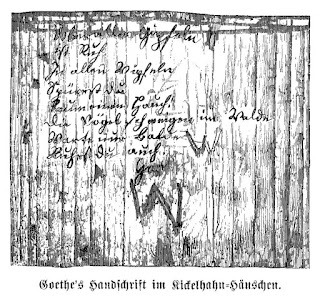 Ueber allen Gipfeln
ist Ruh
In allen Wipfeln
Spürest du
Kaum einen Hauch.
die Vögel schweigen im Walde
Warte nur Balde
Ruhst du auch.
W
W
Goethe's Handschrift im Kickelhahn-Häuschen.